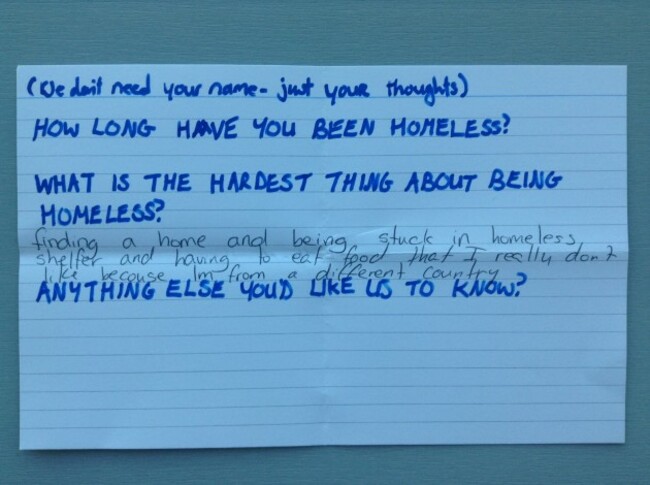 (We don't need your name - just your thoughts)
HOW LONG HAVE YOU BEEN HOMELESS?
WHAT IS THE HARDEST THING ABOUT BEING
HOMELESS?
finding a home and being stuck in homeless
shelter and having to eat food that I really don't
like because Im from a different country
ANYTHING ELSE YOU'D LIKE US TO KNOW?